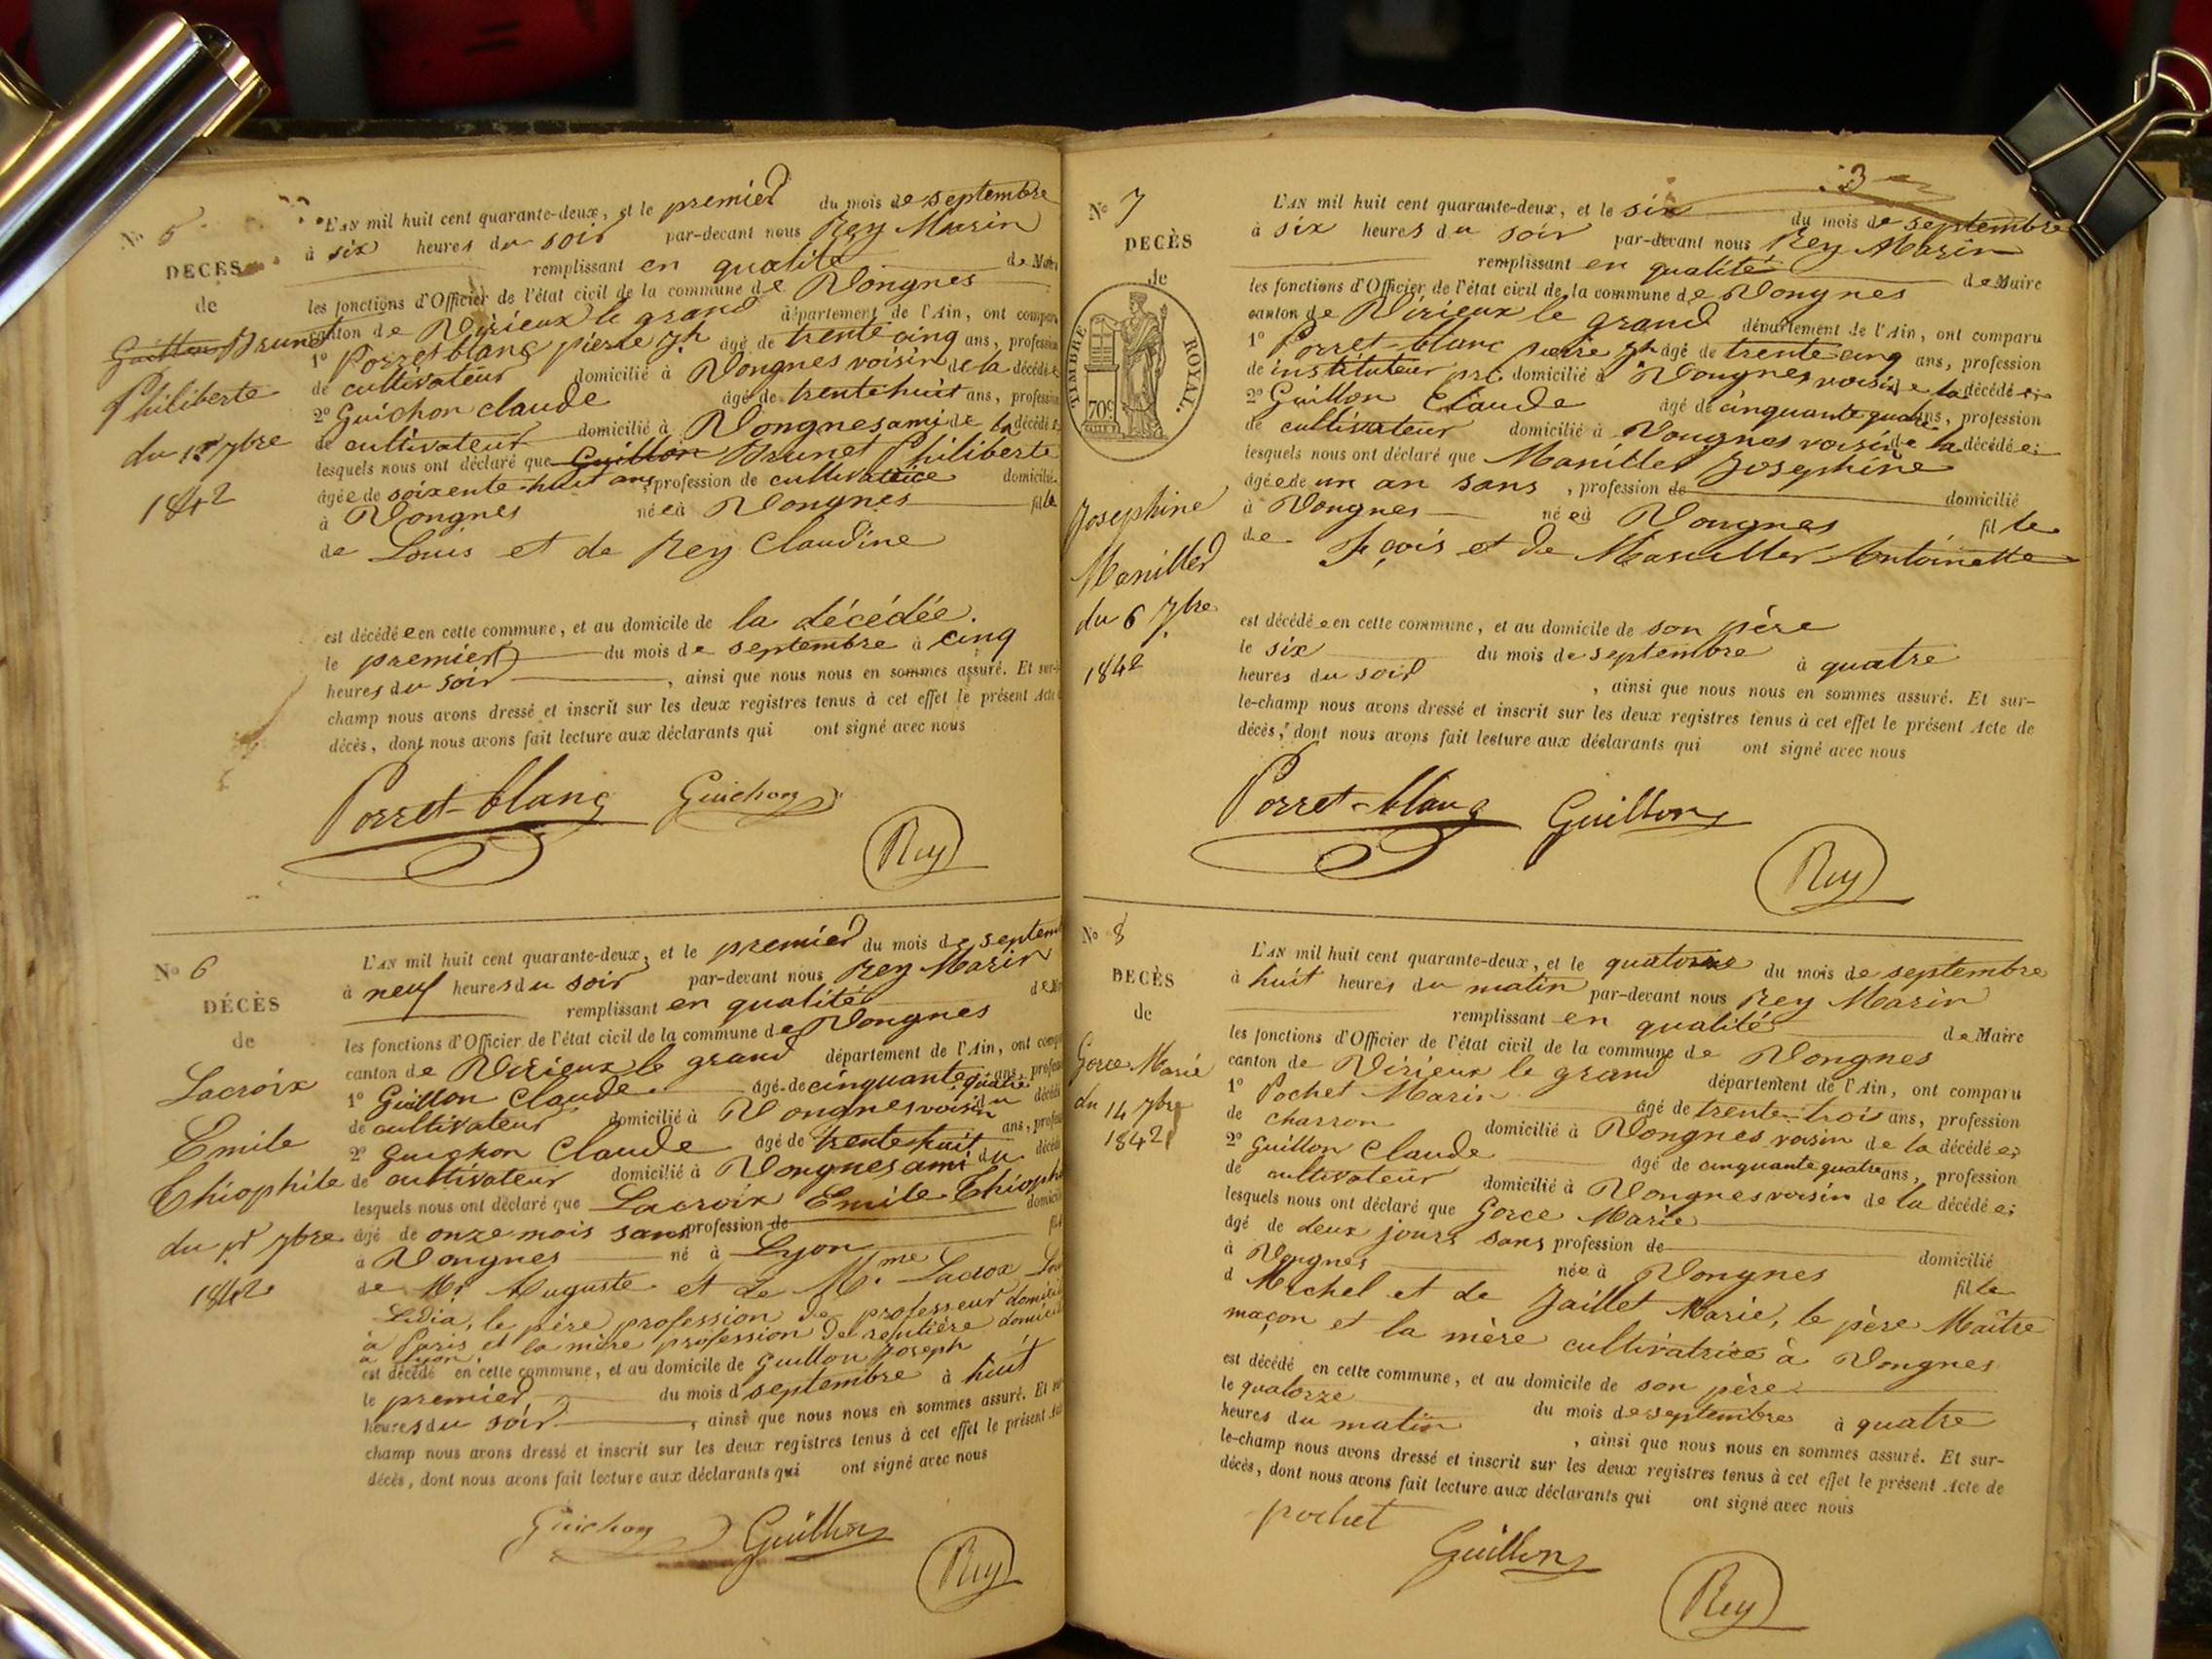 N° 5
DECÈS
de
Guillon Brunet
Philiberte
du 1er 7bre
1842
L'AN mil huit cent quarante-deux, et le premier du mois de septembre
à six heures du soir par-devant nous Rey Marin
remplissant en qualité de Maire
les fonctions d'Officier de l'état civil de la commune de Vongnes
canton de Virieux le grand département de l'Ain, ont comparu
1° Porret-blanc pierre jh âgé de trente cinq ans, profession
de cultivateur domicilié à Vongnes voisin de la décédée
2° Guichon claude âgé de trente huit ans, profession
de cultivateur domicilié à Vongnes ami de la décédée
lesquels nous ont déclaré que Guillon Brunet Philiberte
âgée de soixente-huit ans, profession de cultivatrice domicilié
à Vongnes née à Vongnes fille
de Louis et de Rey Claudine
est décédée en cette commune, et au domicile de la décédée.
le premier du mois de septembre à cinq
heures du soir, ainsi que nous nous en sommes assuré. Et sur-
champ nous avons dressé et inscrit sur les deux registres tenus à cet effet le présent Acte
décès, dont nous avons fait lecture aux déclarants qui ont signé avec nous
Porret-blanc Guichon
Rey
N° 6
DÉCÈS
de
Lacroix
Emile
Thiophile
du 1er 7bre
1842
L'AN mil huit cent quarante-deux, et le premier du mois de septem
à neuf heures du soir par-devant nous Rey Marin
remplissant en qualité de
les fonctions d'Officier de l'état civil de la commune de Vongnes
canton de Virieux le grand département de l'Ain, ont comp
1° Guillon Claude âgé de cinquante quatre ans, profess
de cultivateur domicilié à Vongnes voisin du décédé
2° Guichon Claude âgé de trente huit ans, profes
de cultivateur domicilié à Vongnes ami du décédé
lesquels nous ont déclaré que Lacroix Emile Thioph
âgé de onze mois sans profession de domicilié
à Vongnes né à Lyon fil
de Mr Auguste et de Mme Lacrox
Lidia, le père profession de professeur domicilié
à Paris et la mère profession de rentière domicilié
à Lyon.
est décédé en cette commune, et au domicile de Guillon Joseph
le premier du mois d septembre à huit
heures du soir, ainsi que nous nous en sommes assuré. Et
champ nous avons dressé et inscrit sur les deux registres tenus à cet effet le présent Act
décès, dont nous avons fait lecture aux déclarants qui ont signé avec nous
Guichon Guillon
Rey
3
N° 7
DECÈS
de
TIMBRE ROYAL.
70c
Josephine
Manillier
du 6 7bre
1842
L'AN mil huit cent quarante-deux, et le six du mois de septembre
à six heures du soir par-devant nous Rey Marin
remplissant en qualité de Maire
les fonctions d'Officier de l'état civil de la commune de Vongnes
canton de Virieux le grand département de l'Ain, ont comparu
1° Porret-blanc pierre jh âgé de trente cinq ans, profession
de instituteur domicilié à Vongnes voisin de la décédée
2° Guillon Claude âgé de cinquante quatre ans, profession
de cultivateur domicilié à Vongnes voisin de la décédée
lesquels nous ont déclaré que Manillier Josephine
âgée de un an sans, profession de domicilié
à Vongnes née à Vongnes fille
de Fçois et de Antoinette
est décédée en cette commune, et au domicile de son père
le six du mois de septembre à quatre
heures du soir, ainsi que nous nous en sommes assuré. Et sur-
le-champ nous avons dressé et inscrit sur les deux registres tenus à cet effet le présent Acte de
décès, dont nous avons fait lecture aux déclarants qui ont signé avec nous
Porret-blanc Guillon
Rey
N° 8
DECÈS
de
Gorce Marie
du 14 7bre
1842
L'AN mil huit cent quarante-deux, et le quatorze du mois de septembre
à huit heures du matin par-devant nous Rey Marin
remplissant en qualité de Maire
les fonctions d'Officier de l'état civil de la commune de Vongnes
canton de Virieux le grand département de l'Ain, ont comparu
1° Pochet Marin âgé de trente-trois ans, profession
de charron domicilié à Vongnes voisin de la décédée
2° Guillon Claude âgé de cinquante quatre ans, profession
de cultivateur domicilié à Vongnes voisin de la décédée
lesquels nous ont déclaré que Gorce Marie
âgé de deux jours sans profession de domicilié
à Vongnes née à Vongnes fille
d Michel et de Jaillet Marie, le père Maître
maçon et la mère cultivatrice à Vongnes
est décédé en cette commune, et au domicile de son père
le quatorze du mois de septembre à quatre
heures du matin, ainsi que nous nous en sommes assuré. Et sur-
le-champ nous avons dressé et inscrit sur les deux registres tenus à cet effet le présent Acte de
décès, dont nous avons fait lecture aux déclarants qui ont signé avec nous
pochet
Guillon
Rey